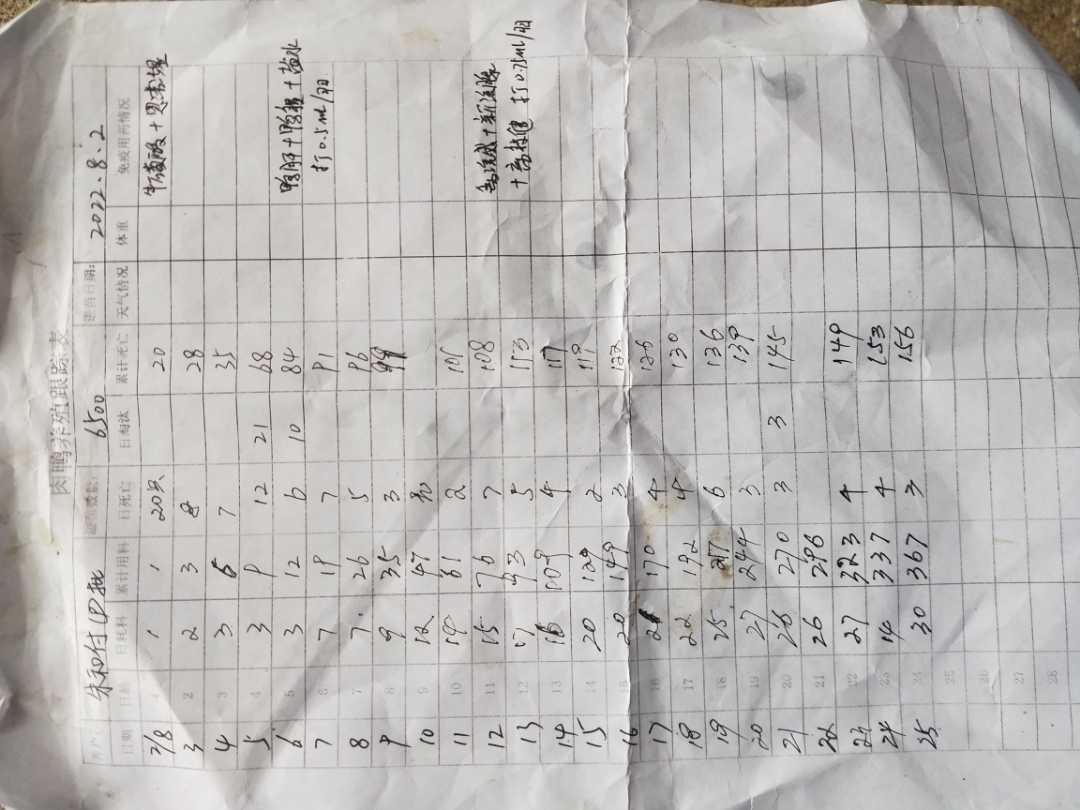 肉鸭养殖跟踪表
养户: 朱和付(D批 进苗数量: 6500 进苗日期: 2022.8.2
日期 日龄 日耗料 累计用料 日死亡 日淘汰 累计死亡 天气情况 体重 免疫用药情况
2/8 1 1 1 20只 20
3 2 2 3 8 28
4 3 3 6 7 35
5 4 3 9 12 21 68 鸭肝+鸭瘟+盐水
6 5 3 12 6 10 84 打0.5ml/羽
7 6 7 19 7 91
8 7 7. 26 5 96
9 8 9 35 3 99
10 9 12 47
11 10 14 61 2
12 11 15 76 7 108
13 12 17 93 5 113 打0.75ml/羽
14 13 16 109 4 117
15 14 20 129 2 119
16 15 20 149 3 122
17 16 21 170 4 126
18 17 22 192 4 130
19 18 25. 217 6 136
20 19 27 244 3 139
21 20 26 270 3 3 145
22 21 26 296
23 22 27 323 4 149
24 23 14 337 4 153
25 24 30 367 3 156
25
26
27
28